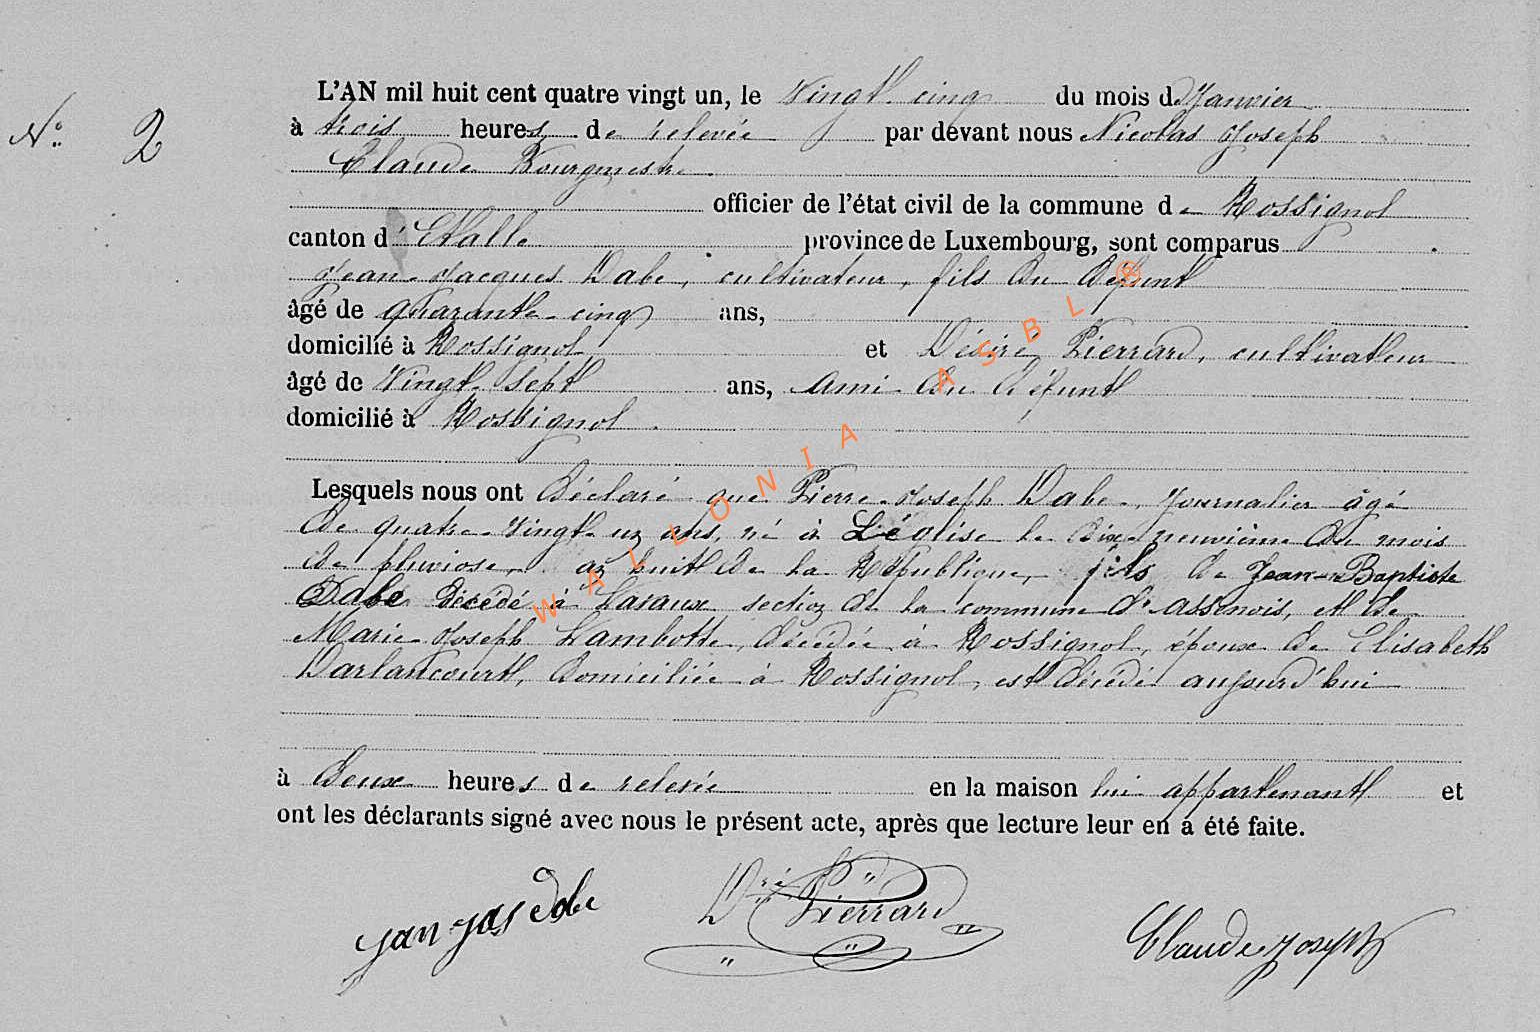 N° 2
L'AN mil huit cent quatre vingt un, le Vingt-cinq du mois de Janvier
à trois heures de relevée par devant nous Nicolas Joseph
Claude Bourgmestre
officier de l'état civil de la commune de Rossignol
canton d'Etalle province de Luxembourg, sont comparus
Jean-Jacques Dabe, cultivateur, fils du défunt
âgé de quarante-cinq ans,
domicilié à Rossignol et Désiré Pierrard, cultivateur
âgé de Vingt-Sept ans, ami du défunt
domicilié à Rossignol.
Lesquels nous ont déclaré que Pierre-Joseph Dabe, journalier âgé
de quatre-vingt-un ans, né à Léglise le dix-neuvième du mois
de pluviose, an huit de la République, fils de Jean-Baptiste
Dabe décédé à section de la commune d'assenois, et de
Marie Joseph Lambotte, décédée à Rossignol, époux de Elisabeth
Darlancourt, domiciliée à Rossignol, est décédé aujourd'hui
à deux heures de relevée en la maison lui appartenant et
ont les déclarants signé avec nous le présent acte, après que lecture leur en a été faite.
jan jas dabe Dré Pierrard Claude Joseph
WALLONIA ASBL ®